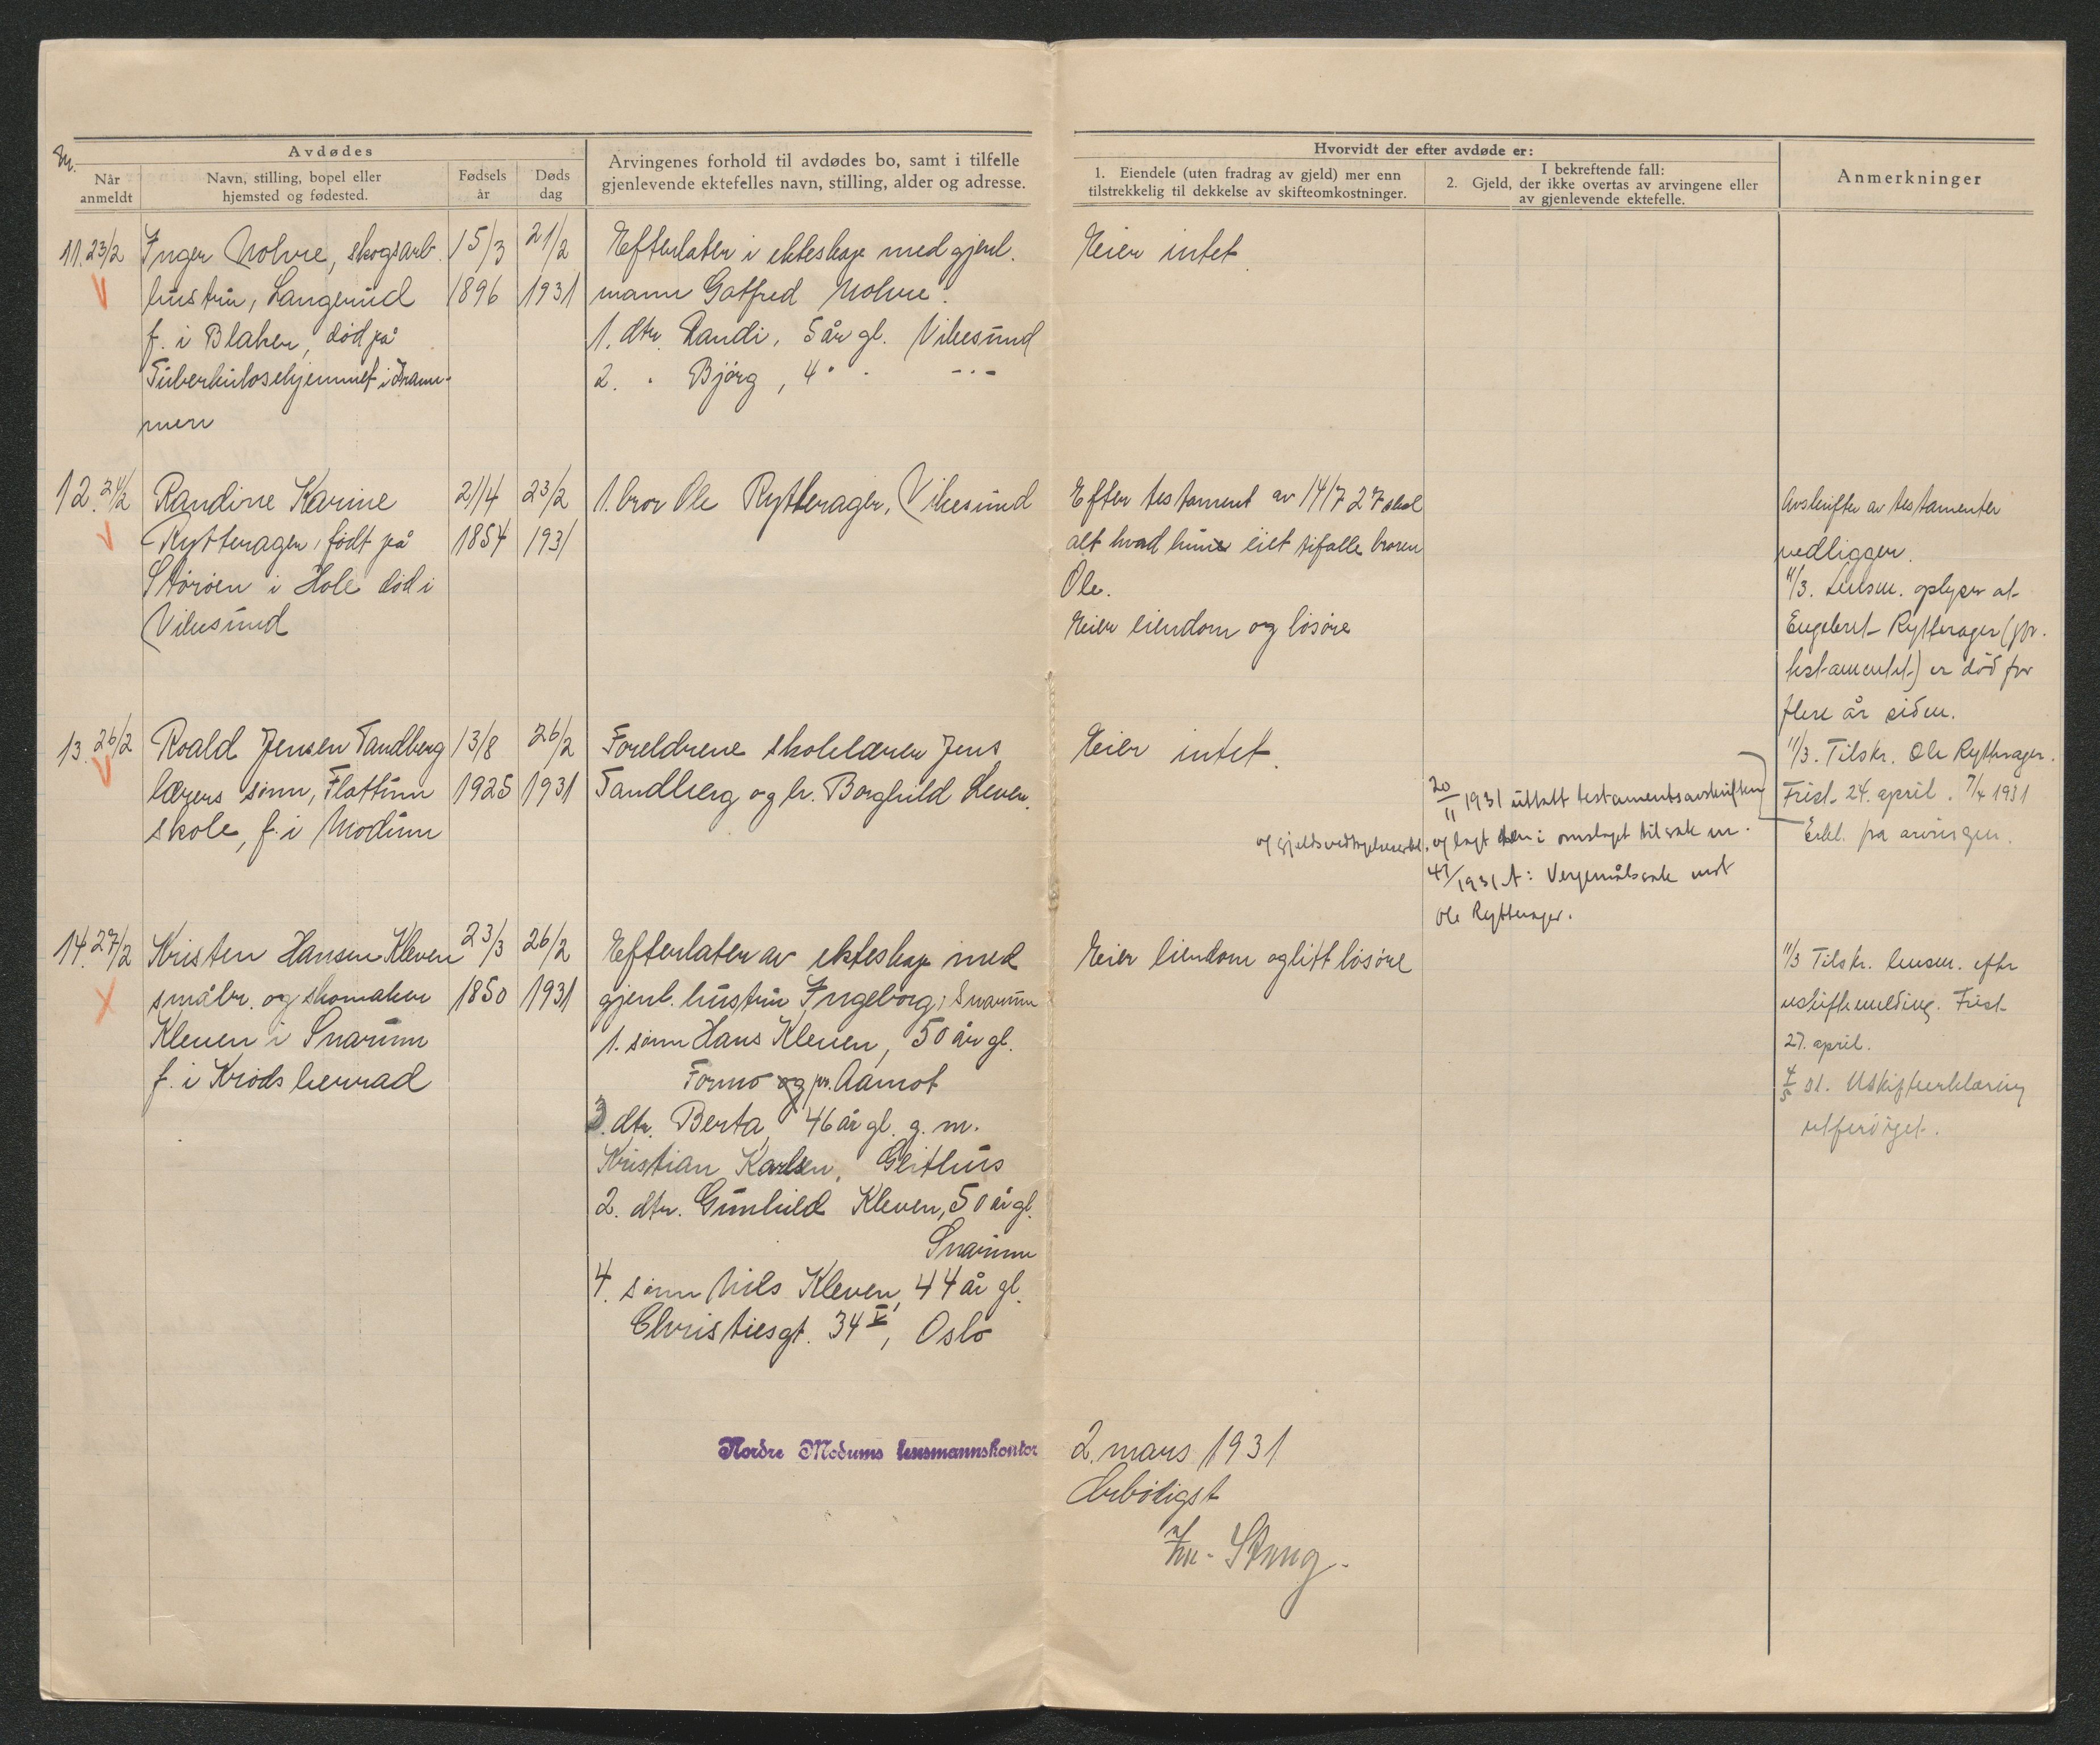 Nr.
Avdødes
Når
anmeldt
Navn, stilling, bopel eller
hjemsted og fødested.
Fødsels
år
Døds
dag
Arvingenes forhold til avdødes bo, samt i tilfelle
gjenlevende ektefelles navn, stilling, alder og adresse.
Hvorvidt der efter avdøde er:
1. Eiendele (uten fradrag av gjeld) mer enn
tilstrekkelig til dekkelse av skifteomkostninger.
I bekreftende fall:
2. Gjeld, der ikke overtas av arvingene eller
av gjenlevende ektefelle.
Anmerkninger
11. 23/2
Inger Mohre, skogsarb.
hustru, Langerud
f. i Blaker, död på
Tuberkulosehjemmet i Dram-
men
15/3
1896
21/2
1931
Efterlater i ekteskap med gjenl.
mann Gotfred Mohre.
1. dtr. Randi, 5 år gl. Vikesund
2. " Björg, 4 " " -"-
Eier intet
12. 24/2
Randine Karine
Rytterager, födt på
Storöen i Hole död i
Vikesund
21/4
1854
23/2
1931
1. bror Ole Rytterager, Vikesund
Efter testament av 14/7 27 skal
alt hvad hun eiet tifalle broren
Ole.
Eier eiendom og lösöre
Avskrifter av testamenter
vedligger.
11/3. Lensm. oplyser at
Engebret Rytterager (jfr.
testamentet) er död for
flere år siden.
11/3. Tilskr. Ole Rytterager.
Frist 24. april. 7/4 1931
Erkl. fra arvingen.
13. 26/2
Roald Jensen Tandberg
lærers sönn, Flattum
skole, f. i Modum
13/8
1925
26/2
1931
Foreldrene skolelærer Jens
Tandberg og h. Borghild Lever.
Eier intet.
20/11 1931 uttatt testamentsavskriften
og gjeldsvedtagelseserkl. og lagt den i omslaget til sak nr.
41/1931 A: Vergemålssak mot
Ole Rytterager.
14. 27/2
Kristen Hansen Kleven
småbr. og skomaker
Kleven i Snarum
f. i Kröds herrad
23/3
1850
26/2
1931
Efterlater av ekteskap med
gjenl. hustru Ingeborg, Snarum
1. sönn Hans Kleven, 50 år gl.
Formo og pr. Aamot
3. dtr. Berta, 46 år gl. g. m.
Kristian Karlsen, Geithus
2. dtr. Gunhild Kleven, 50 år gl.
Snarum
4. sönn Nils Kleven, 44 år gl.
Christiesgt. 34 V, Oslo
Eier eiendom og litt lösöre
11/3 Tilskr. lensm. efter
uskiftemelding. Frist
27. april.
4/5 31. Uskifteerklæring
utferdiget.
Nordre Modums lensmannskontor
2. mars 1931
Ærbödigst